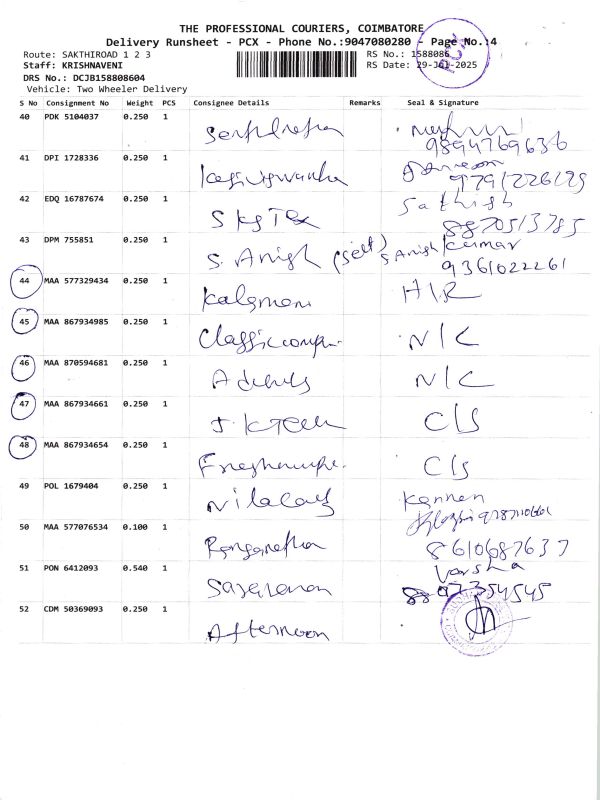 THE PROFESSIONAL COURIERS, COIMBATORE
Delivery Runsheet - PCX - Phone No.:9047080280 - Page No.:4
Route: SAKTHIROAD 1 2 3
RS No.: 1588086
Staff: KRISHNAVENI
RS Date: 29-Jul-2025
DRS No.: DCJB158808604
Vehicle: Two Wheeler Delivery
S No Consignment No Weight PCS Consignee Details Remarks Seal & Signature
40 PDK 5104037 0.250 1
9894769636
41 DPI 1728336 0.250 1
9791226129
42 EDQ 16787674 0.250 1 SKG Tex Sathish
8870513785
43 DPM 755851 0.250 1 S. Anish (self) S Anish kumar
9361022261
44 MAA 577329434 0.250 1 Kalamani H/R
45 MAA 867934985 0.250 1 N/C
46 MAA 870594681 0.250 1 N/C
47 MAA 867934661 0.250 1 J.K Tech C/S
48 MAA 867934654 0.250 1 C/S
49 POL 1679404 0.250 1 Kannan
50 MAA 577076534 0.100 1 Ranganathan 8610687637
51 PON 6412093 0.540 1 Saravanan Varsha
52 CDM 50369093 0.250 1 Afternoon